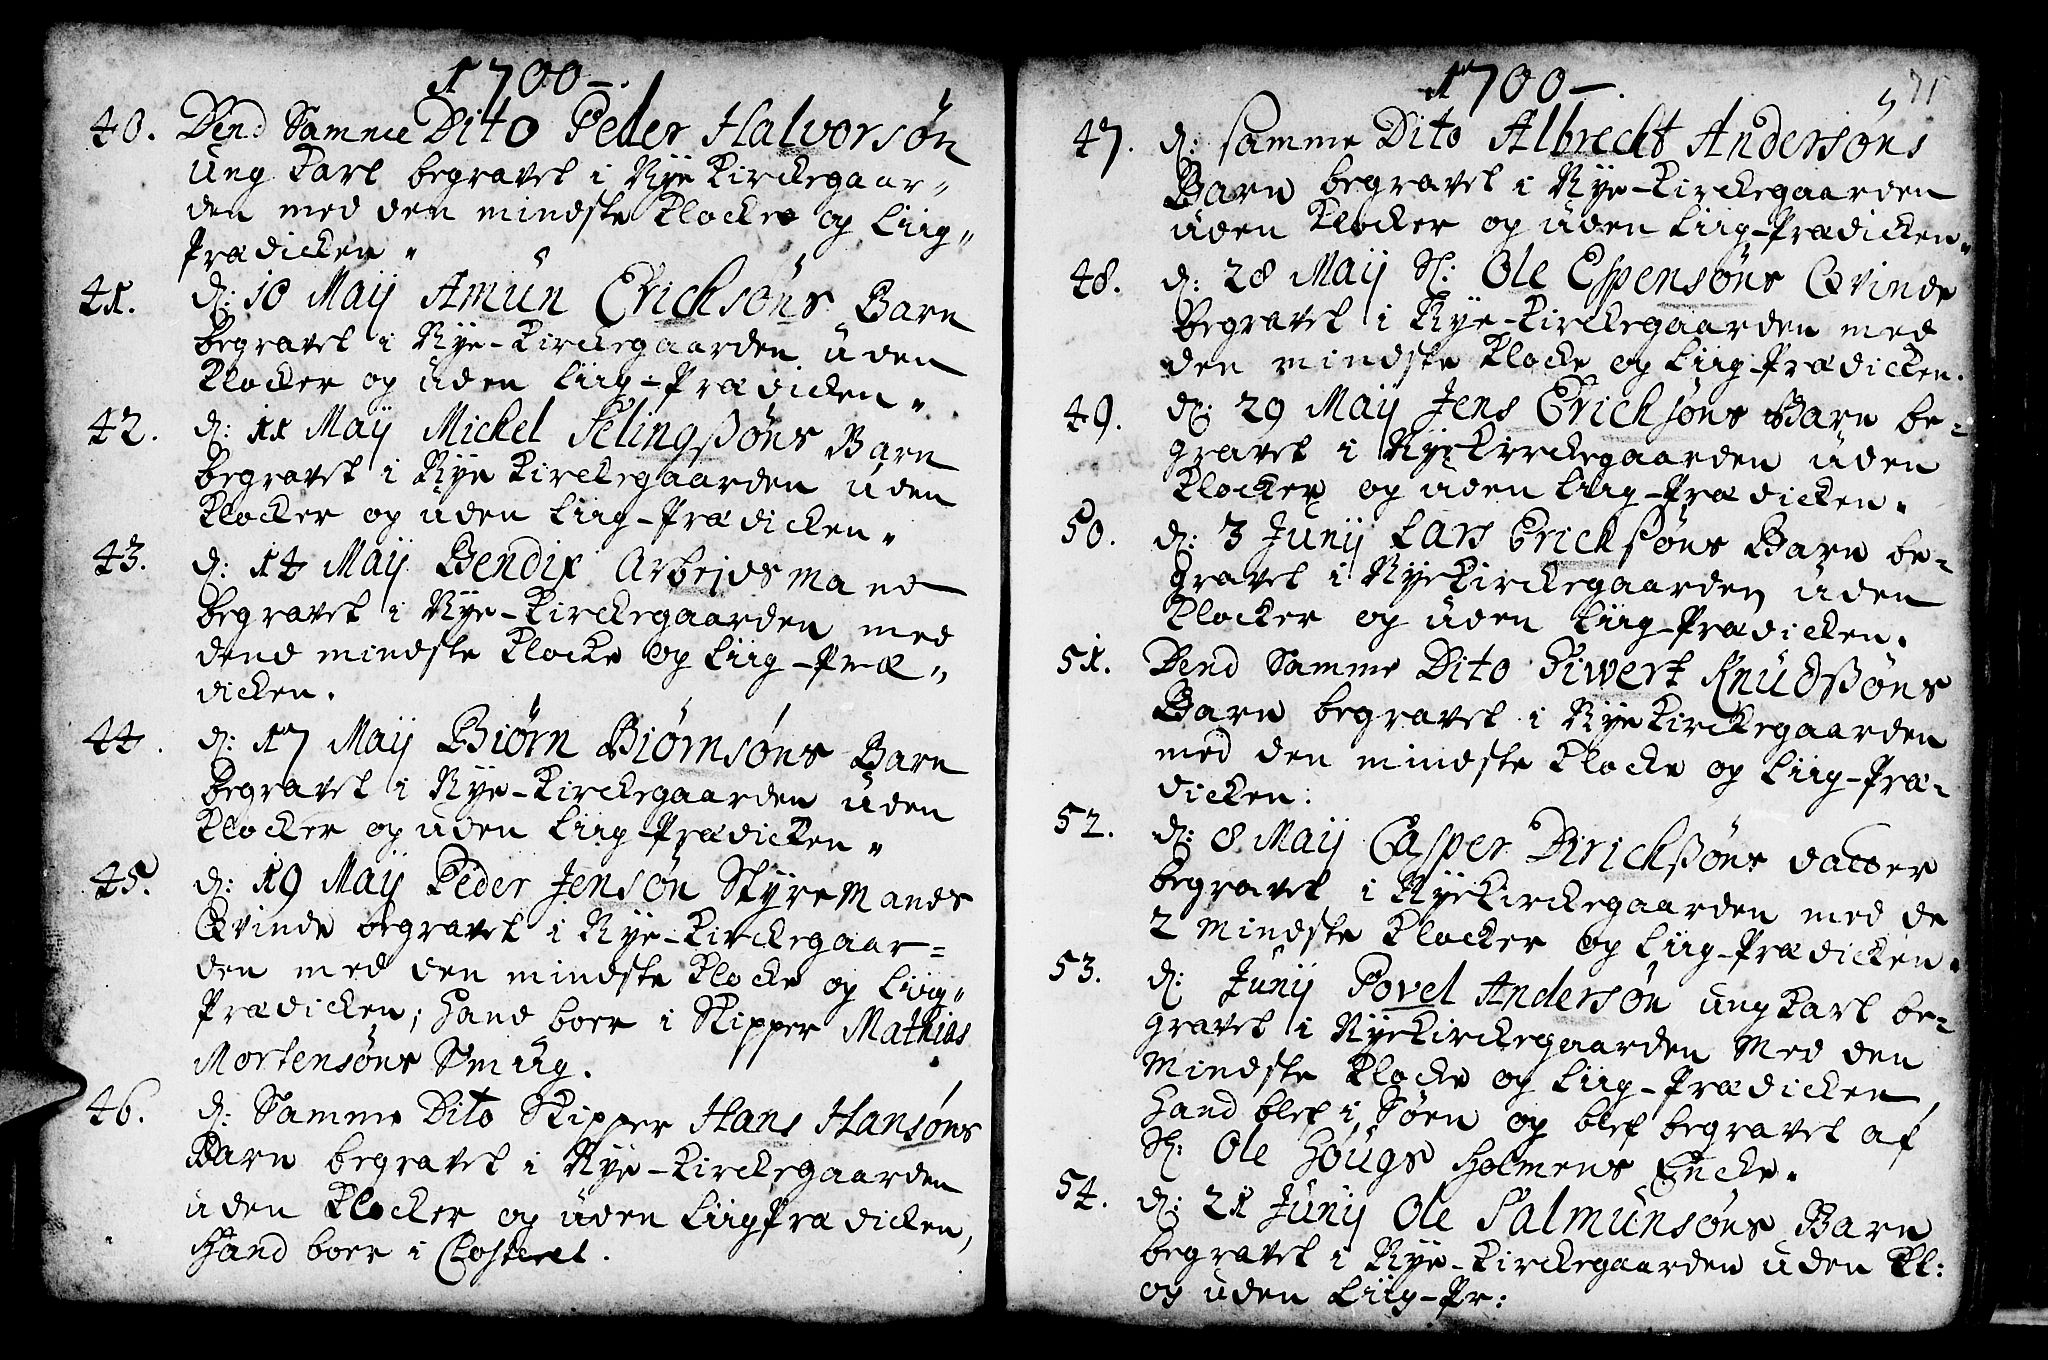 1700 –.
40. Dend Samme Dito Peder Halvorsøn
Ung Karl begravet i Nye Kirckegaar-
den med den mindste Klocke og Liig-
Prædicken.
41. d: 10 Maij Amun Ericksøns Barn
begravet i Nye-Kirckegaarden uden
Klocker og uden Liig-Prædicken.
42. d: 11 Maij Mickel Selingßøns Barn
begravet i Nye Kirckegaarden uden
Klocker og uden Liig-Prædicken.
43. d: 14 Maij Bendix Arbejdsmand
begravet i Nye-Kirckegaarden med
dend mindste Klocke og Liig-Præ-
dicken.
44. d: 17 Maij Biørn Biørnsøns Barn
begravet i Nye-Kirckegaarden uden
Klocker og uden Liig-Prædicken.
45. d: 19 Maij Peder Jensøn Styremands
Qvinde begravet i Nye-Kirckegaar=
den med den mindste Klocke og Liig-
Prædicken; hand boer i Skipper Mathias
Mortensøns Smug.
46. d: Samme Dito Skipper Hans Hansøns
Barn begravet i Nye-Kirckegaarden
uden Klocker og uden Liig Prædicken,
Hand boer i Closteret.
1700 –.
71
47. d: samme Dito Albrecht Andersøns
Barn begravet i Nye-Kirckegaarden
uden Klocker og uden Liig-Prædicken.
48. d: 28 Maij Sl: Ole Espensøns Qvinde
begravet i Nye-Kirckegaarden med
den mindste Klocke og Liig-Prædicken.
49. d: 29 Maij Jens Ericksøns Barn be-
gravet i Nye Kirckegaarden uden
Klocker og uden Liig-Prædicken.
50. d: 3 Junij Lars Erickßøns Barn be-
gravet i Nye Kirckegaarden uden
Klocker og uden Liig-Prædicken.
51. Dend Samme Dito Siwert Knudßøns
Barn begravet i Nye Kirckegaarden
med den mindste Klocke og Liig-Præ-
dicken:
52. d: 8 Maij Casper Dirickßøns
begravet i Nye Kirckegaarden med de
2 mindste Klocker og Liig-Prædicken.
53. d: Junij Povel Andersøn ung Karl be-
gravet i Nye Kirckegaarden Med den
Mindste Klocke og Liig-Prædicken,
hand blef i Søen og blef begravet af
Sl: Ole Høugs Holmens Encke.
54. d: 21 Junij Ole Salmunsøns Barn
begravet i Nye-Kirckegaarden uden Kl:
og uden Liig-Pr: